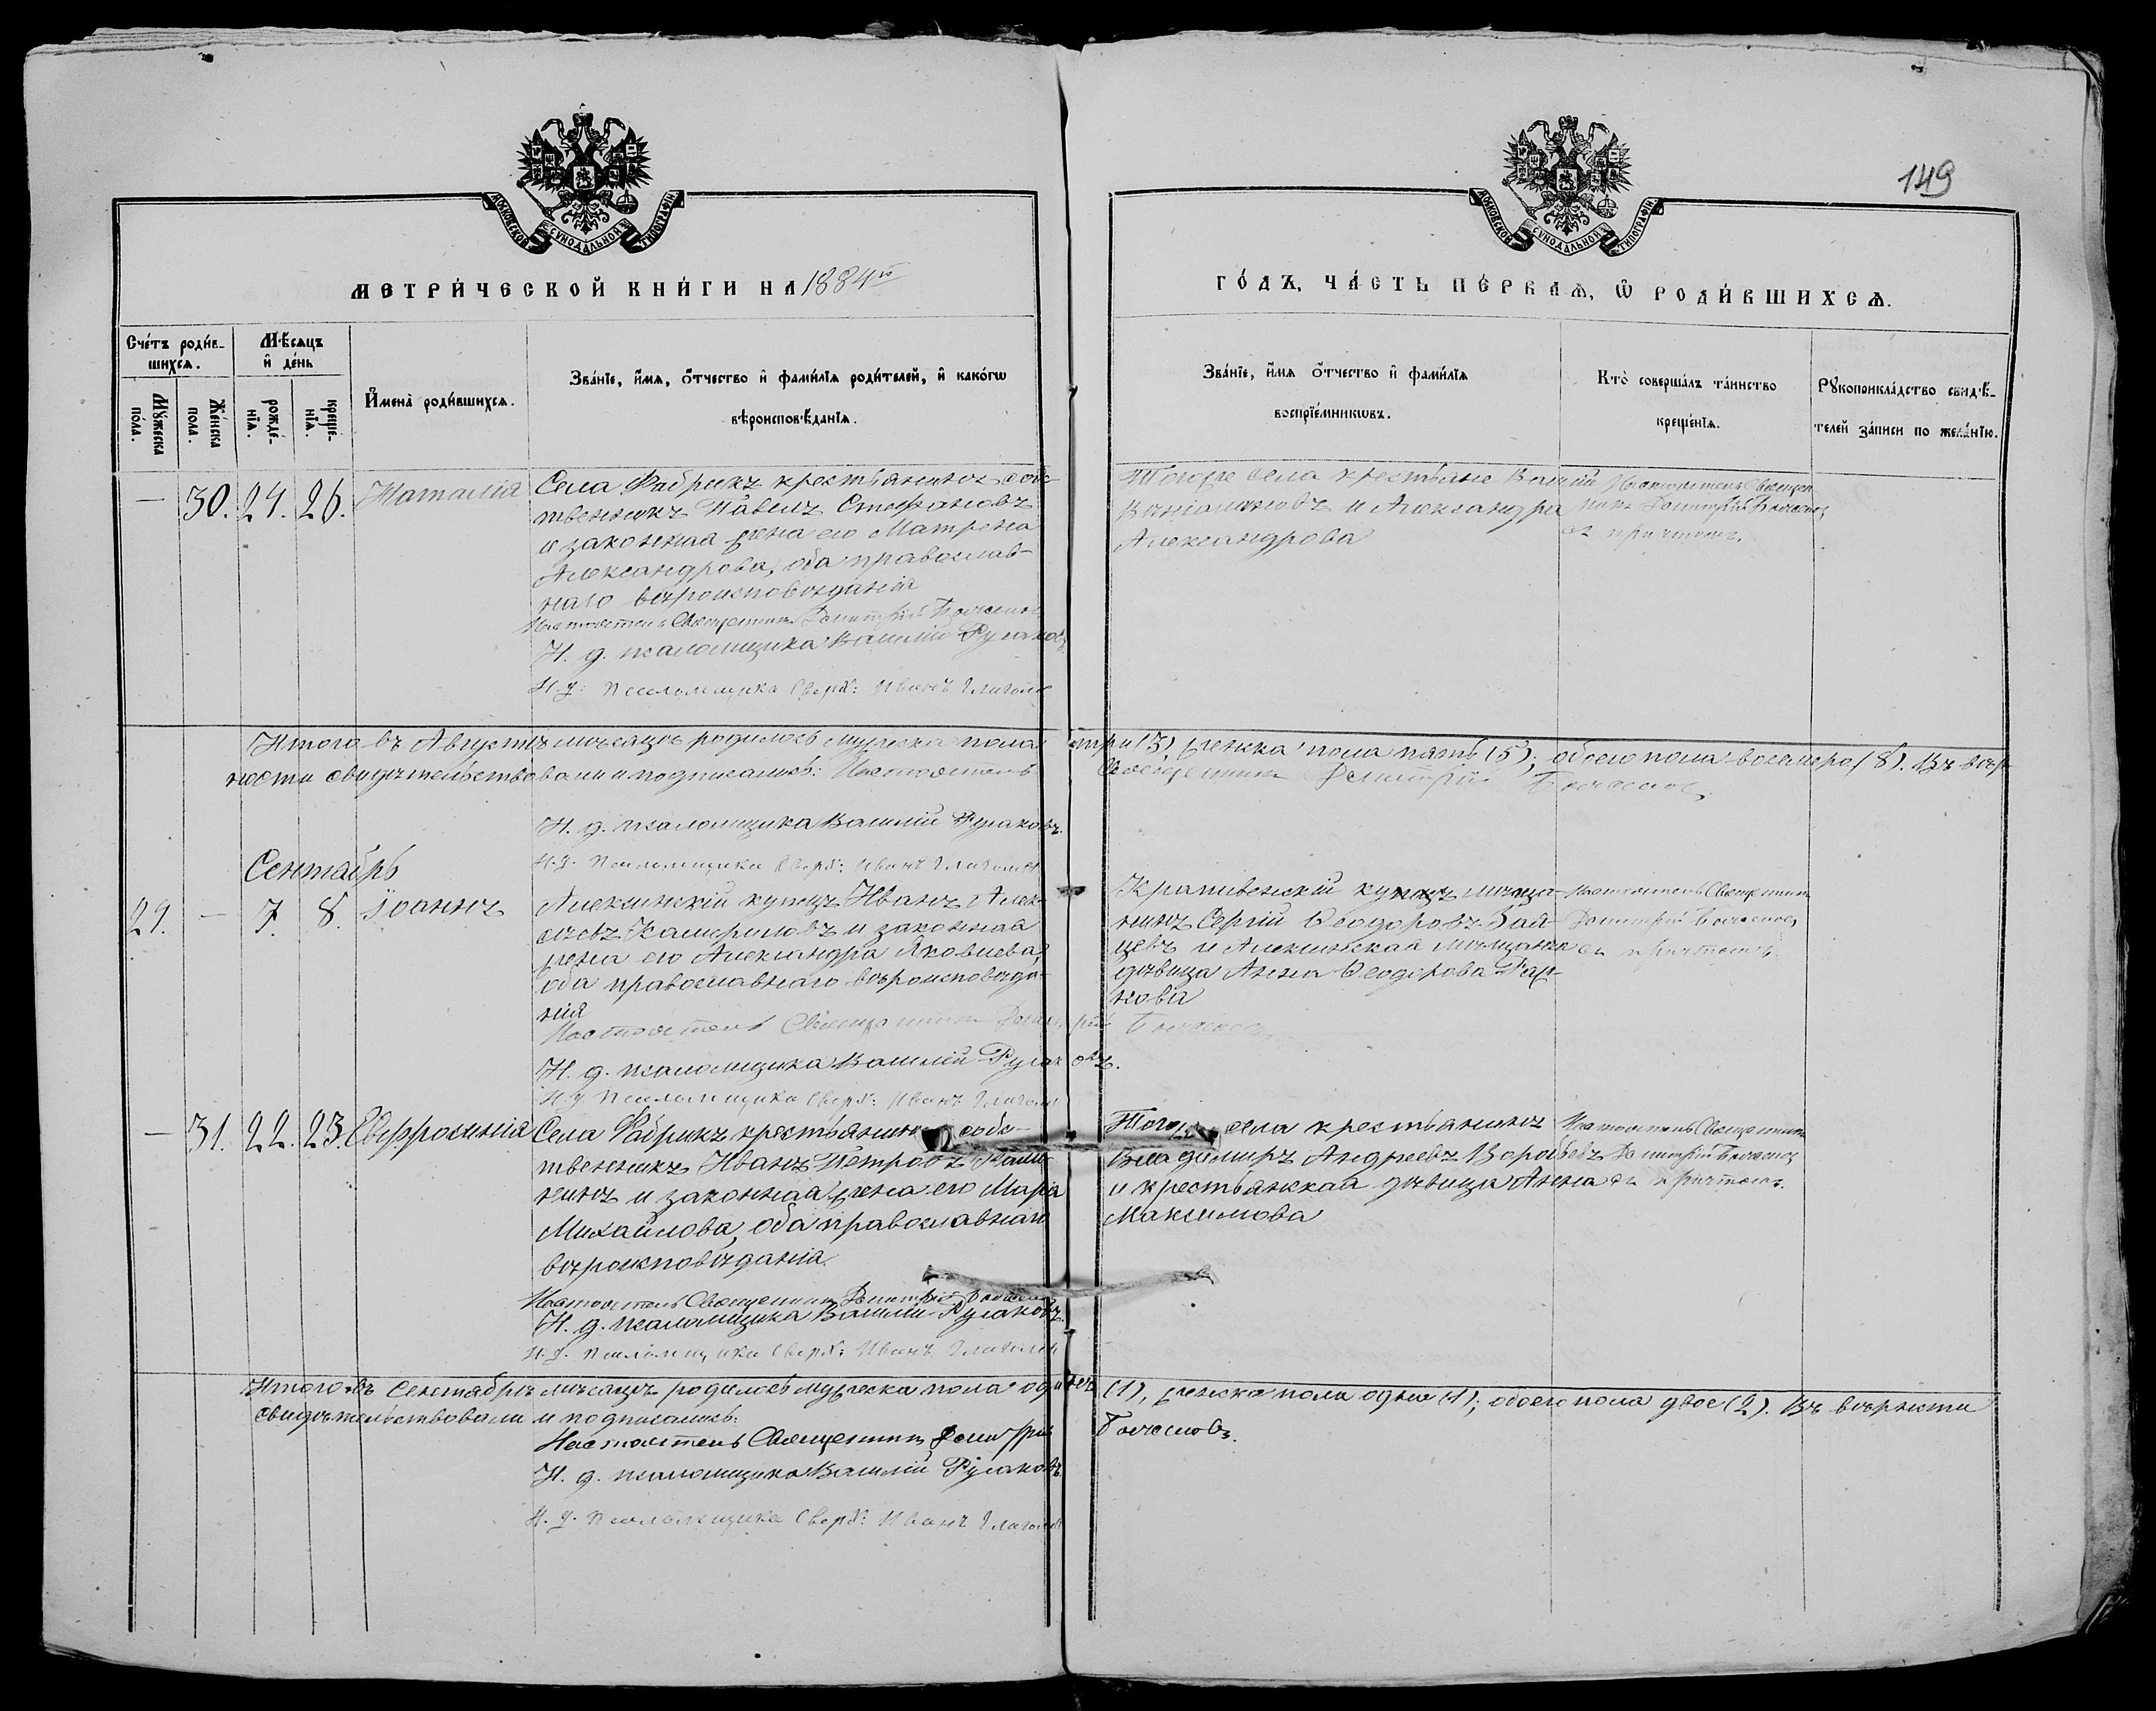 149
МОСКОВСКОЙ СѴНОДАЛЬНОЙ ТИПОГРАФІИ
МОСКОВСКОЙ СѴНОДАЛЬНОЙ ТИПОГРАФІИ
МЕТРИ́ЧЕСКОЙ КНИ́ГИ НА 1884й
ГО́ДЪ, ЧА́СТЬ ПЕ́РВАѦ, Ѽ РОДИ́ВШИХСѦ.
Сче́тъ роди́в-
шихсѧ.
Мꙋ́жеска по́ла.
Же́нска пола.
Мѣ́сѧцъ
и҆ де́нь
рожде́-нїѧ.
креще́-нїѧ.
И҆мена̀ роди́вшихсѧ.
Зва́нїе, и҆́мѧ, ѻ҆́тчество и҆ фами́лїѧ роди́телей, и҆ како́гѡ
вѣроисповѣ́данїѧ.
Зва́нїе, и҆́мѧ ѻ҆́тчество и҆ фами́лїѧ
воспрїе́мникѡвъ.
Кто̀ соверша́лъ та́инство
креще́нїѧ.
Рꙋкоприкла́дство свидѣ́-
телей за́писи по жела́нїю.
— 30. 24. 26. Наталія
Села Фабрикъ крестьянинъ собс-
твенникъ Павелъ Стефановъ
и законная жена его Матрена
Александрова, оба православ-
наго вѣроисповѣданія
Настоятель Священникъ Димитрій
Н. д. псаломщика Василій Рудаковъ
Н. д. Псаломщика Сверх: Иванъ Глаголе
Тогоже села крестьяне Василій
Веніаминовъ и Александра
Александрова
Настоятель Священ
никъ Димитрій
съ причтомъ.
Итого въ Августѣ мѣсяцѣ родилось мужеска пола три (3), женска пола пять (5), обоего пола восьмеро (8). Въ вѣр-
ности свидѣтельствовали и подписались: Настоятель Священникъ Димитрій
Н. д. псаломщика Василій Рудаковъ.
Н. д. Псаломщика Сверх: Иванъ Глаголе
Сентябрь
29. — 7. 8. Іоаннъ
Алексинскій купецъ Иванъ Алек-
сѣевъ и законная
жена его Александра Яковлева,
оба православнаго вѣроисповѣда-
нія
Настоятель Священникъ Димитрій
Н. д. псаломщика Василій Рудаковъ.
Н. д. Псаломщика Сверх: Иванъ Глаголе
Крапивенскій купецъ мѣща-
нинъ Сергій Ѳеодоровъ Зай-
цевъ и Алексинская мѣщанка
дѣвица Анна Ѳеодорова
Настоятель Священникъ
Димитрій
съ причтомъ
— 31. 22. 23. Евфросинія
Села Фабрикъ крестьянинъ собс-
твенникъ Иванъ Петровъ
и законная жена его Марія
Михайлова, оба православнаго
вѣроисповѣданія.
Настоятель Священникъ Димитрій
Н. д. псаломщика Василій Рудаковъ.
Н. д. Псаломщика Сверх: Иванъ Глаголе
Тогоже села крестьянинъ
Владимиръ Андреевъ Воробьевъ
и крестьянская дѣвица Анна
Максимова
Настоятель Священникъ
Димитрій
съ причтомъ.
Итого въ Сентябрѣ мѣсяцѣ родилось мужеска пола одинъ (1), женска пола одна (1); обоего пола двое (2). Въ вѣрности
свидѣтельствовали и подписались:
Настоятель Священникъ Димитрій
Н. д. псаломщика Василій Рудаковъ
Н. д. Псаломщика Сверх: Иванъ Глаголе